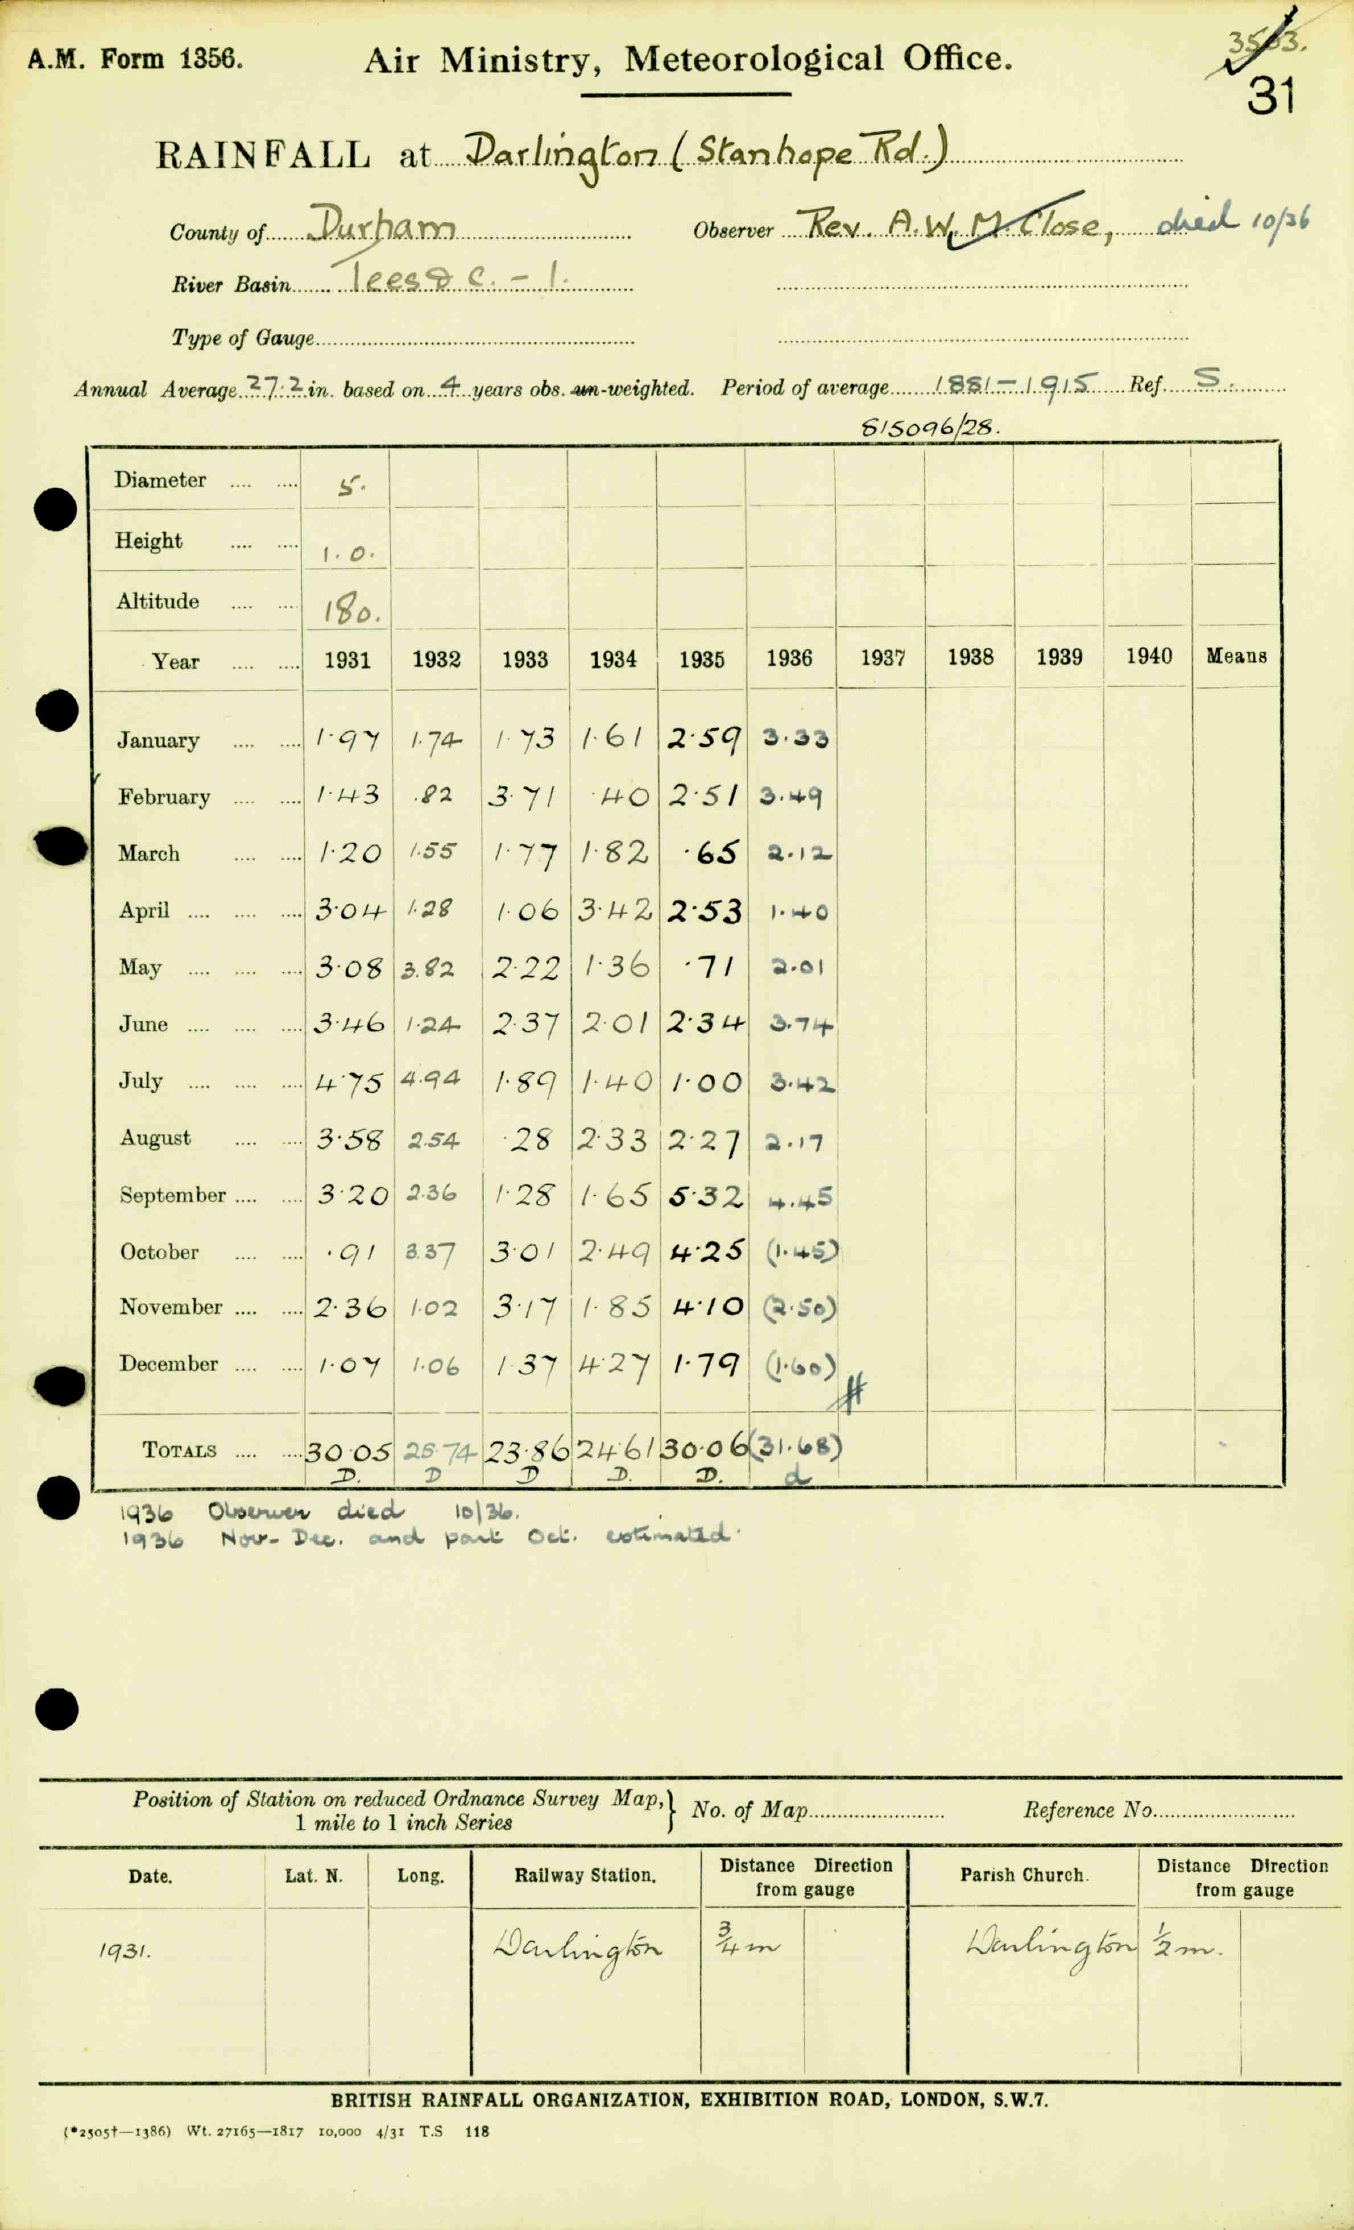 A.M. Form 1356. Air Ministry, Meteorological Office. 3503.
31
RAINFALL at Darlington (Stanhope Rd.)
County of Durham Observer Rev. A.W. M. Close, died 10/36
River Basin Tees & C. - 1.
Type of Gauge
Annual Average 27.2 in. based on 4 years obs. un-weighted. Period of average 1881-1915 Ref. S.
815096/28.
Diameter .... .... 5.
Height .... .... 1.0.
Altitude .... .... 180.
Year .... .... 1931 1932 1933 1934 1935 1936 1937 1938 1939 1940 Means
January .... .... 1.97 1.74 1.73 1.61 2.59 3.33
February .... .... 1.43 .82 3.71 .40 2.51 3.49
March .... .... 1.20 1.55 1.77 1.82 .65 2.12
April .... .... .... 3.04 1.28 1.06 3.42 2.53 1.40
May .... .... .... 3.08 3.82 2.22 1.36 .71 2.01
June .... .... .... 3.46 1.24 2.37 2.01 2.34 3.74
July .... .... .... 4.75 4.94 1.89 1.40 1.00 3.42
August .... .... 3.58 2.54 .28 2.33 2.27 2.17
September .... .... 3.20 2.36 1.28 1.65 5.32 4.45
October .... .... .91 3.37 3.01 2.49 4.25 (1.45)
November .... .... 2.36 1.02 3.17 1.85 4.10 (2.50)
December .... .... 1.07 1.06 1.37 4.27 1.79 (1.60)
#
TOTALS .... .... 30.05 25.74 23.86 24.61 30.06 (31.68)
D. D D D. D. d
1936 Observer died 10/36.
1936 Nov- Dec. and part Oct. estimated.
Position of Station on reduced Ordnance Survey Map, } No. of Map Reference No.
1 mile to 1 inch Series
Date. Lat. N. Long. Railway Station. Distance Direction from gauge Parish Church. Distance Direction from gauge
1931. Darlington 3/4 m Darlington 1/2 m.
BRITISH RAINFALL ORGANIZATION, EXHIBITION ROAD, LONDON, S.W.7.
(*2505†—1386) Wt. 27165—1817 10,000 4/31 T.S 118